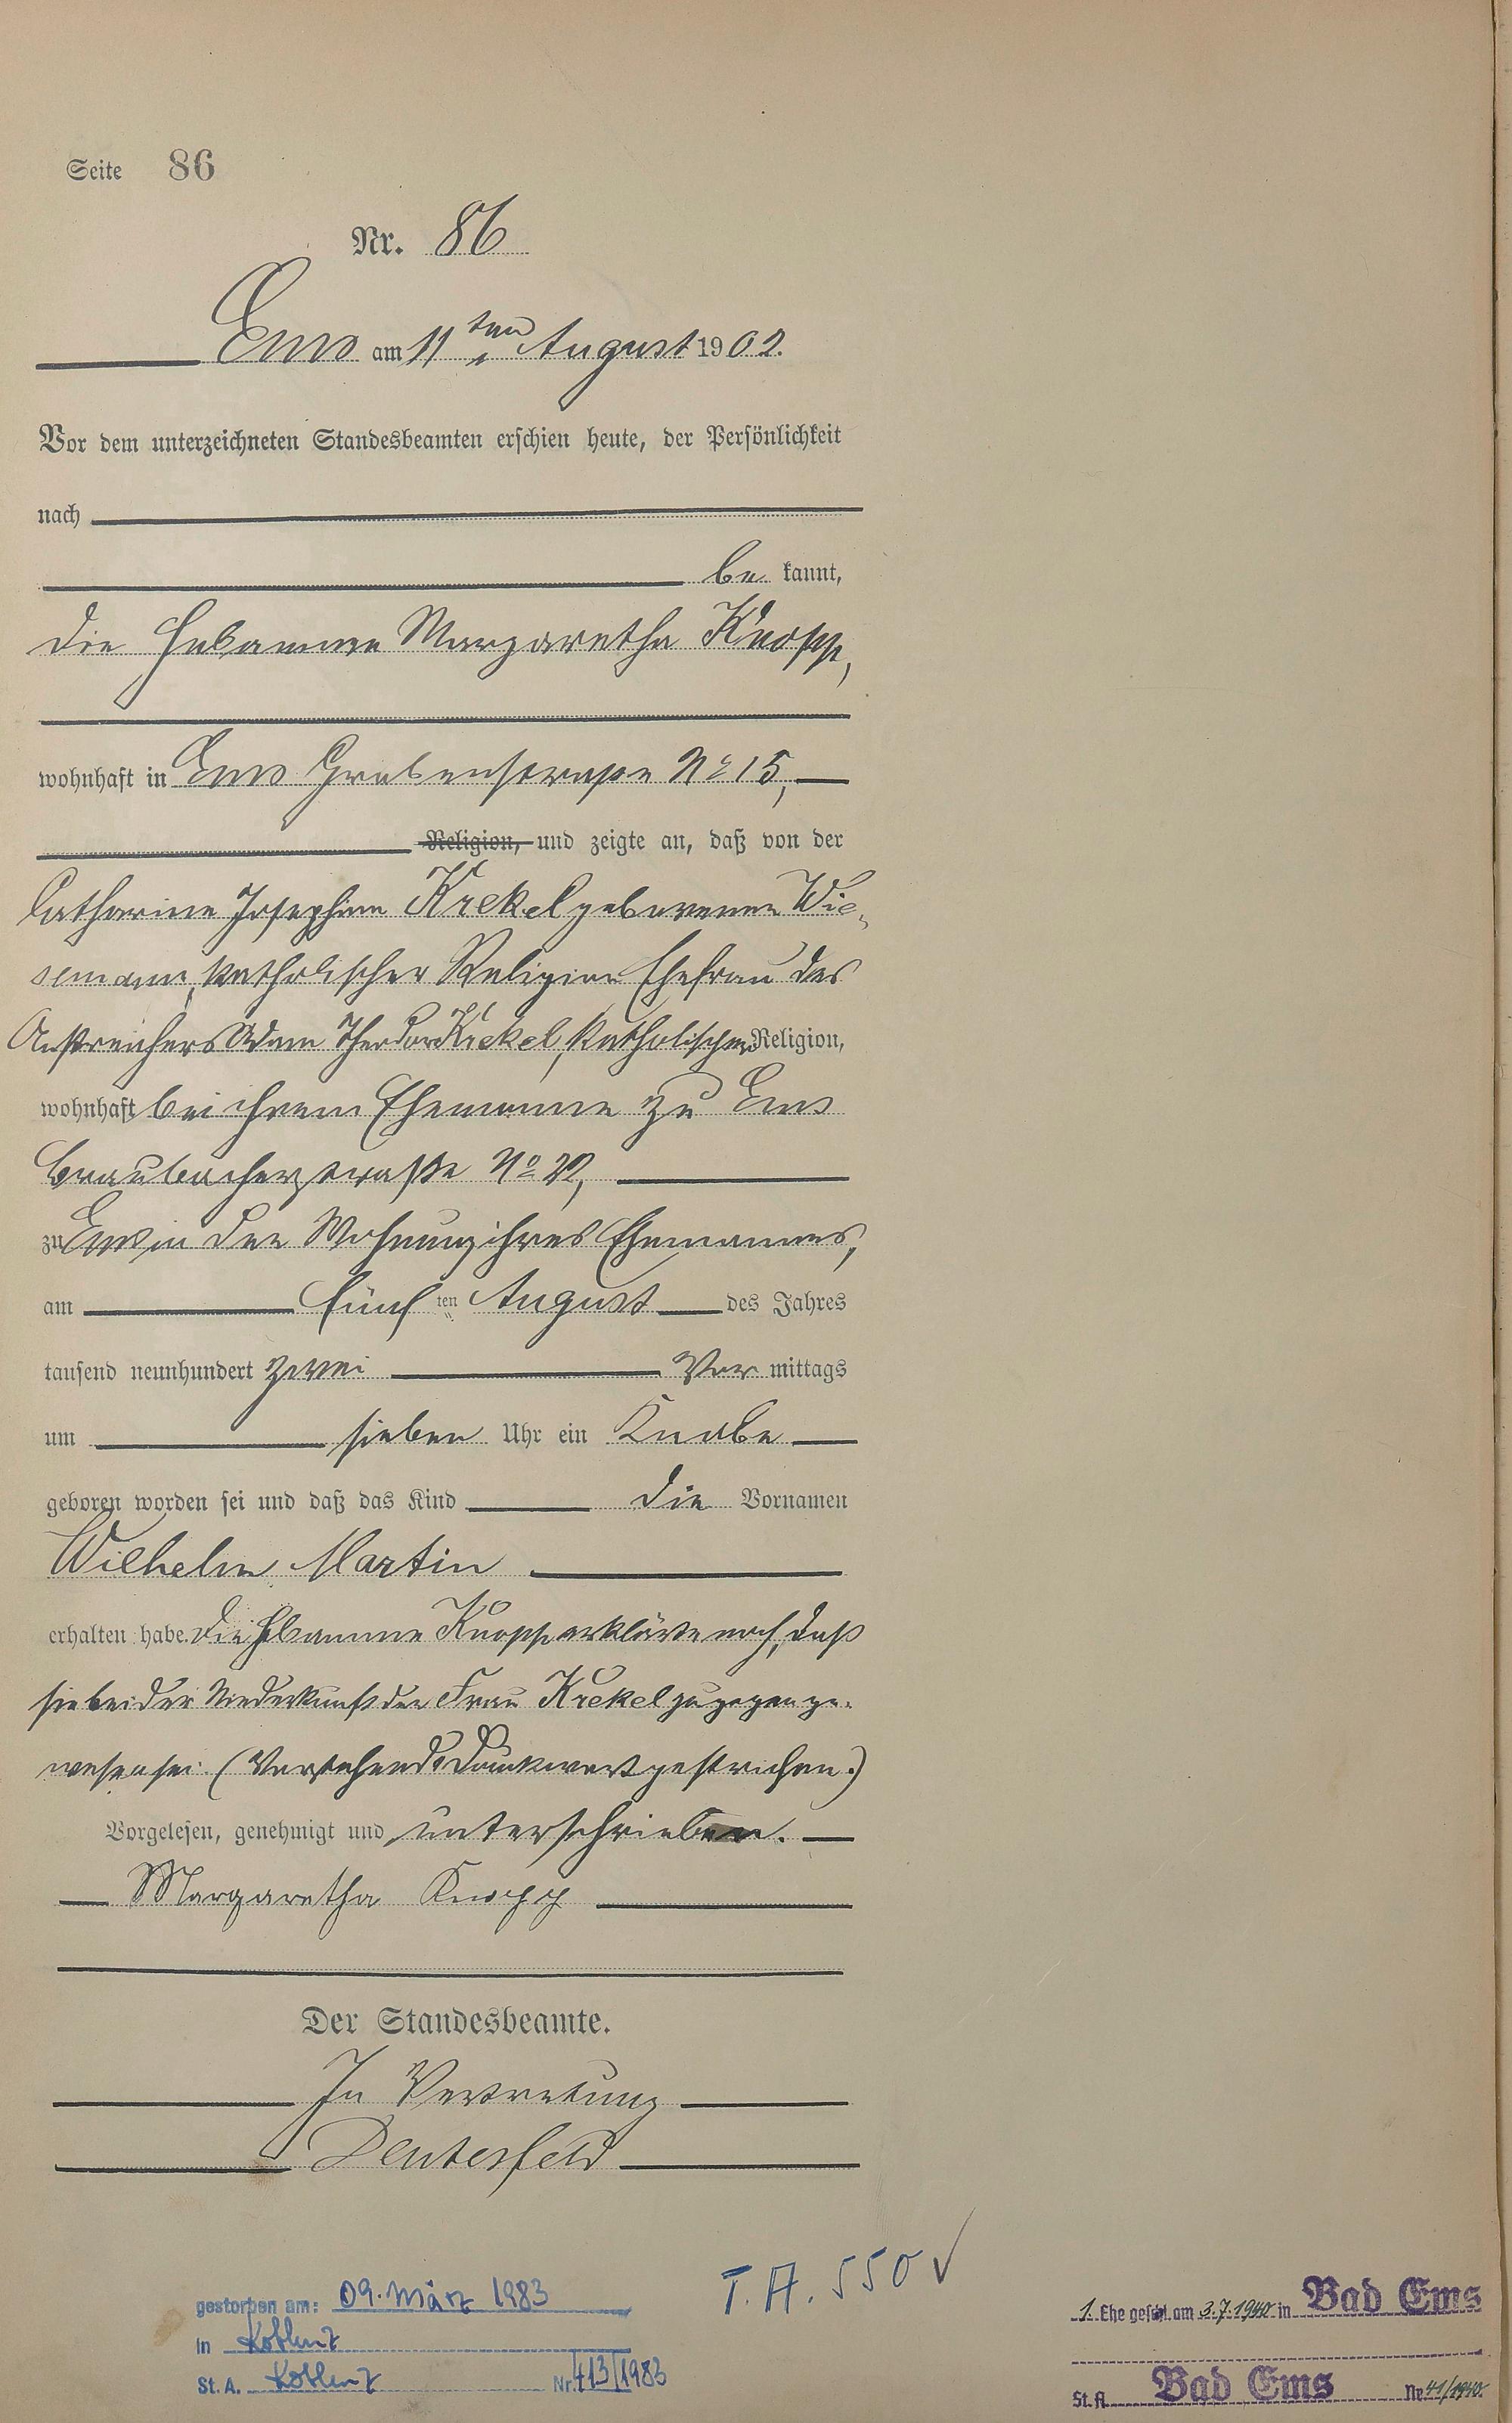 Seite 86
Nr. 86
Ems am 11ten August 1902.
Vor dem unterzeichneten Standesbeamten erschien heute, der Persönlichkeit
nach
be kannt,
die Hebamme Margaretha Knopp,
wohnhaft in Ems Grabenstraße No 15,
Religion, und zeigte an, daß von der
Catharine Josephine Krekel geborenen Wie-
semann, katholischer Religion Ehefrau des
Anstreichers Adam Theodor Krekel, katholischer Religion,
wohnhaft bei ihrem Ehemanne zu Ems
Braubacherstraße No 22,
zu Ems in der Wohnung ihres Ehemannes,
am fünf ten August des Jahres
tausend neunhundert zwei Vor mittags
um sieben Uhr ein Knabe
geboren worden sei und daß das Kind die Vornamen
Wilhelm Martin
erhalten habe. Die Hebamme Knopp erklärte noch, daß
sie bei der Niederkunft der Frau Krekel zugegen ge-
wesen sei. (Vorstehend 1 Druckwort gestrichen.)
Vorgelesen, genehmigt und unterschrieben.
Margaretha Knopp
Der Standesbeamte.
In Vertretung
gestorben am: 09. März 1983
in Koblenz
St. A. Koblenz Nr. 413/1983
T. A. 550 ✓
1. Ehe geschl. am 3.7.1940 in Bad Ems
St. A. Bad Ems Nr. 41/1940.